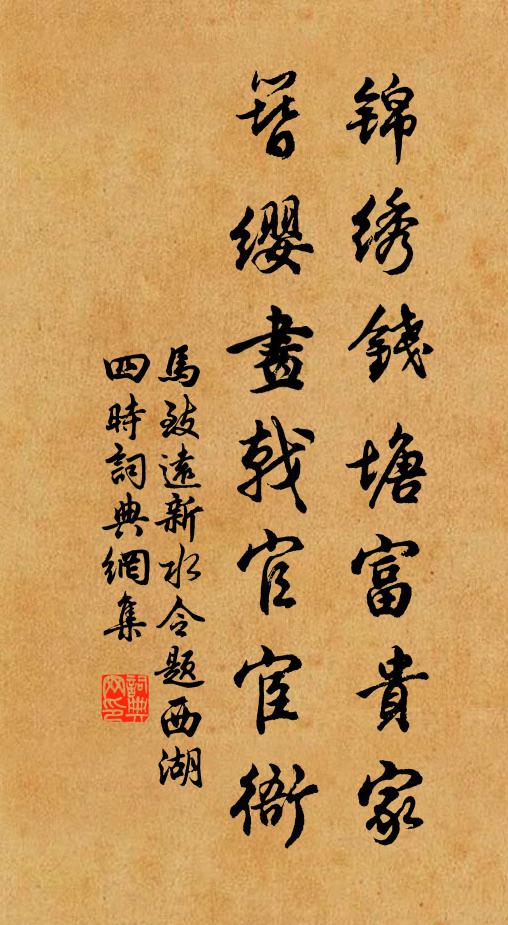 锦绣錢塘富貴家
簪纓畫戟官宦衙
馬致遠新水令題西湖
四時詞典網集
詞典网印